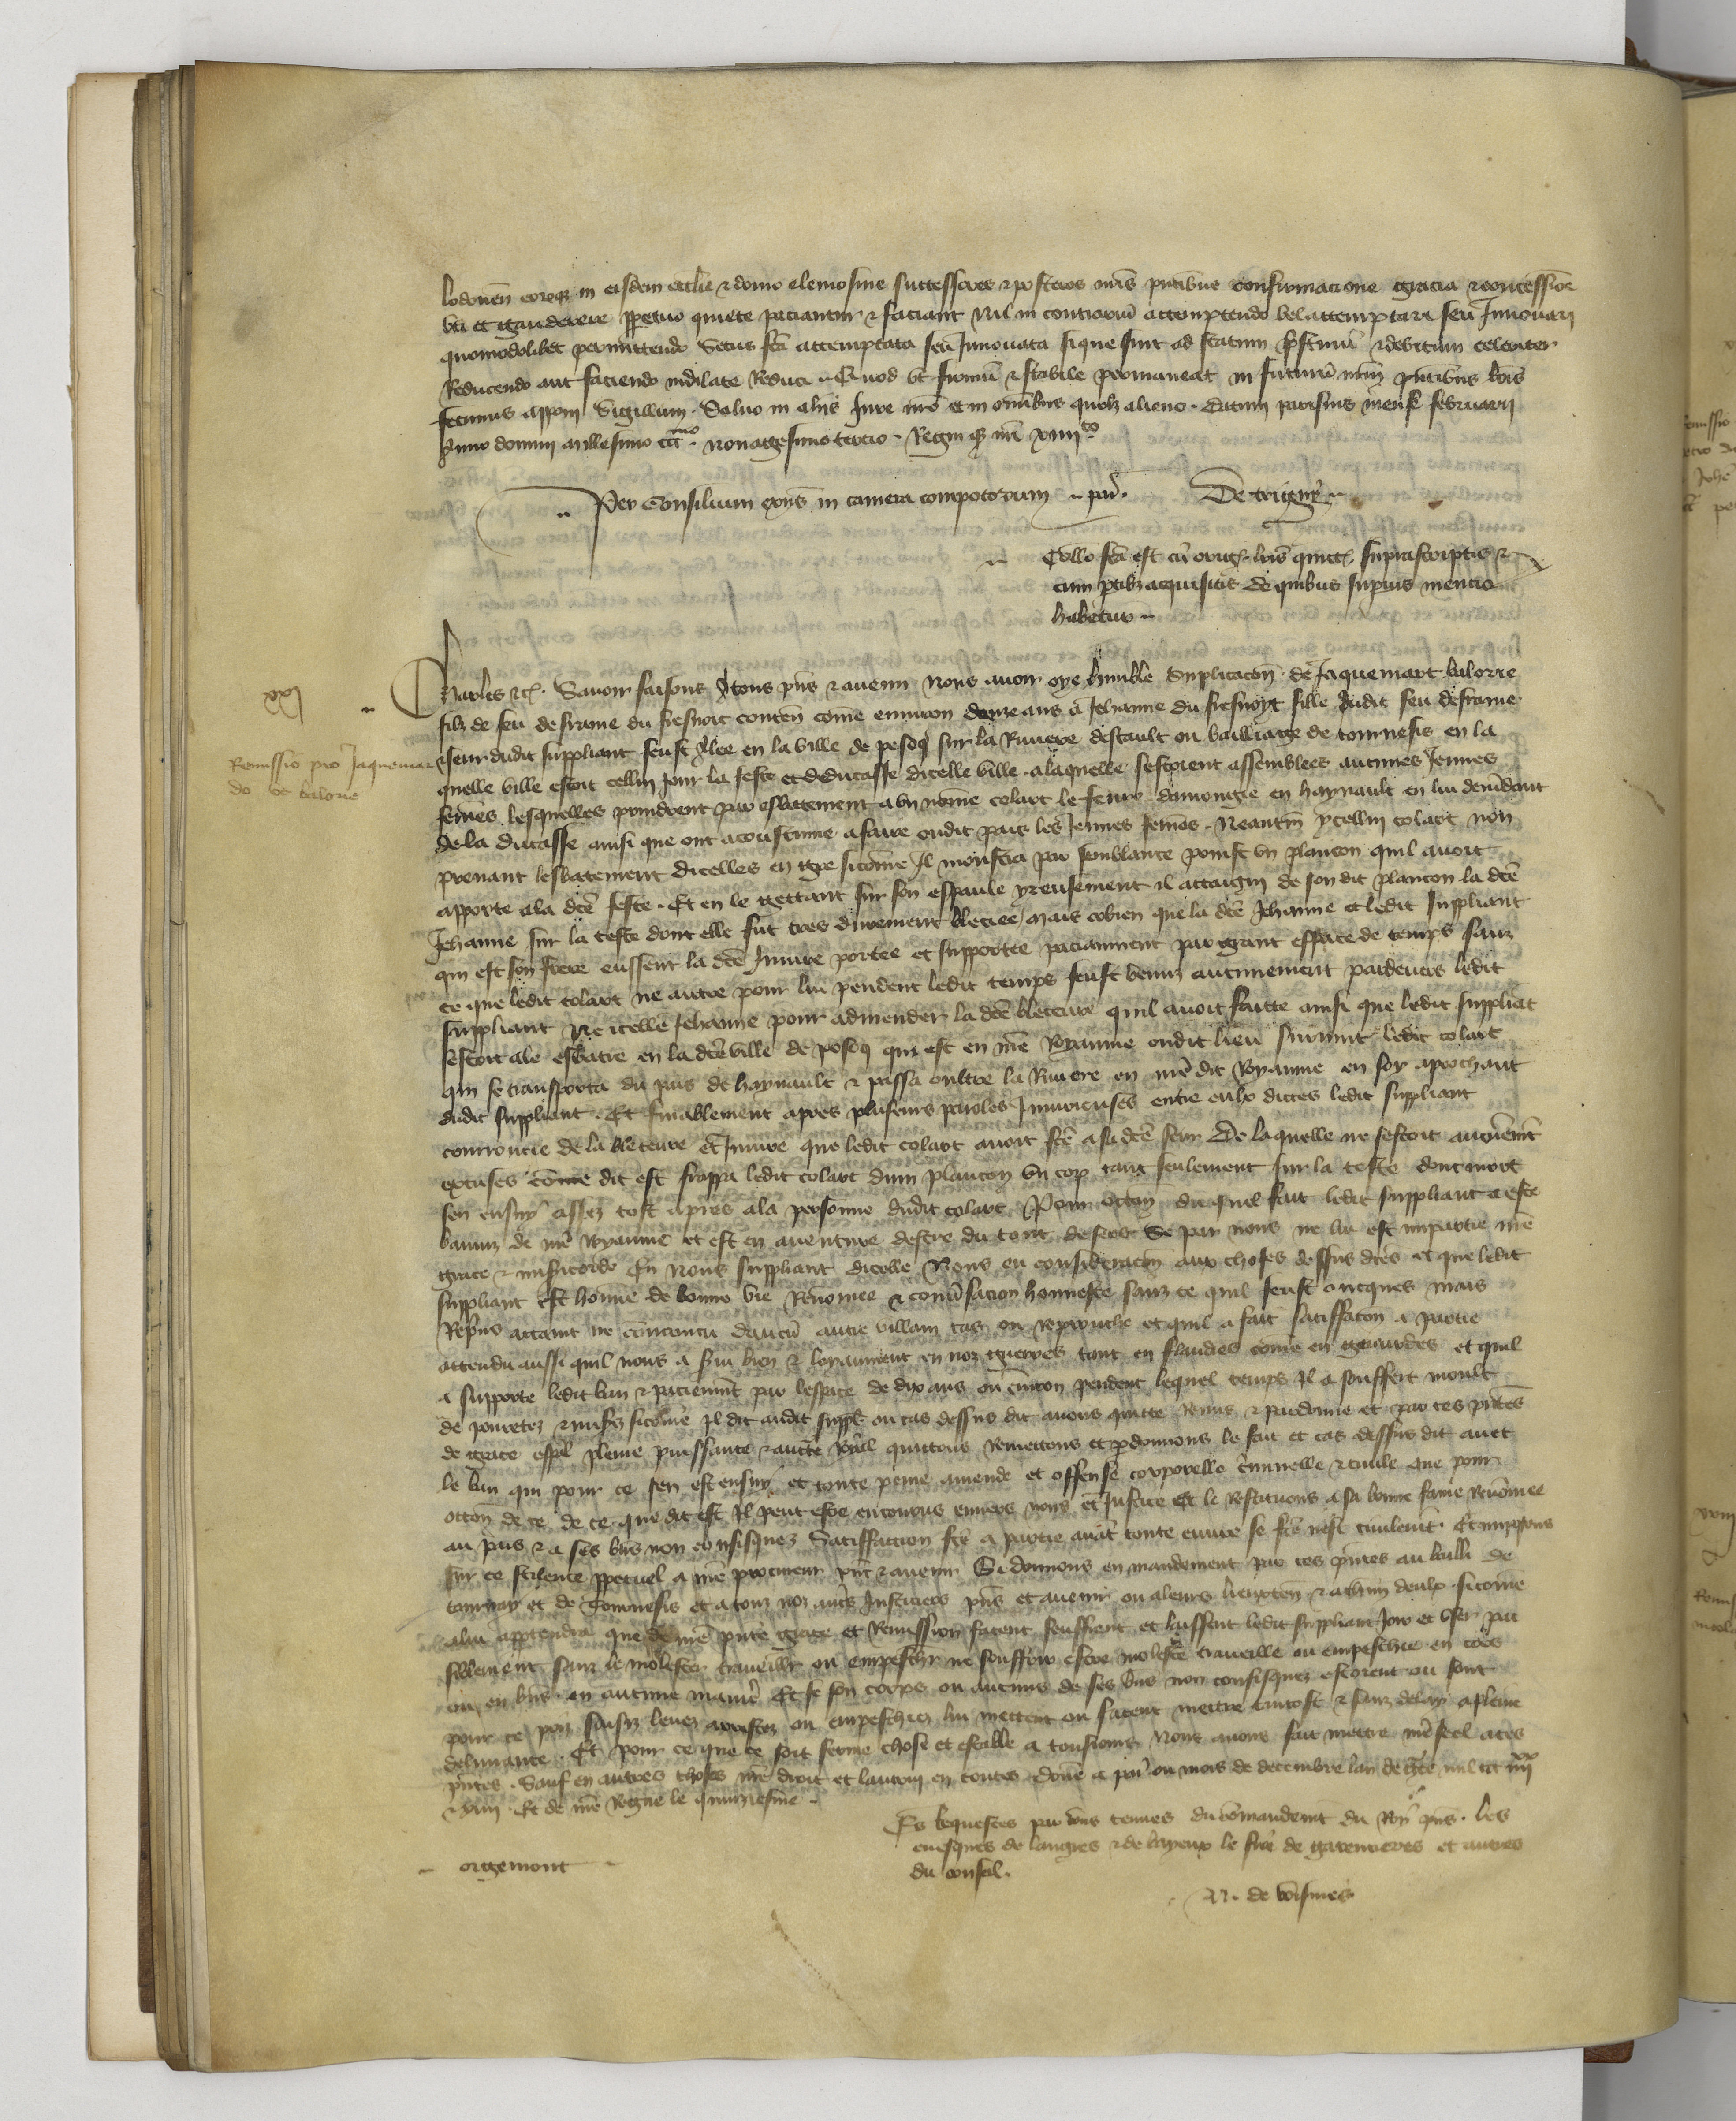 lodoueñ eorumque in eisdem ecclia & domo elemosine successores & posteros nr̃is pñtibus confirmacione gracia & concessione
uti et gaudere perpetuo quiete paciantur & faciant nil in contrariũ attemptando vel attemptari seu Innouari
quomodolibet permittendo Secus fc̃a attemptata seu Innouata sique sint ad statum pristinũ & debitum celeriter
Reducendo aut faciendo indilate Reduci .. Quod ut firmũ & stabile permaneat in futurũ nr̃m pñtibus lr̃is
fecimus apponi Sigillum . Saluo in aliis Jure nr̃o et in omĩbus quolz alieno . Datum parisius mense februarii
Anno domini millesimo ccc̃mo . nonagesimo tercio . Regni q̃ nr̃i xiiiito .
.. Per Consilium exñs in camera compotorum .. par̃ . De trigny ..
.. Collo fc̃a est cũ orig . lr̃is quitt . suprascriptis &
cum ptibz acquisitis de quibus supius mencio
habetur ..
xxj
Charles etc̃ . Sauoir faisons A tous pñs & auenir Nous auoir oye humble Suplicacoñ . de Jaquemart balorie
filz de feu desrame du fresnoit conteñ cõme enuiron douze ans a Jehanne du fresnoyt fille Judit feu desrame
Remissio pro Jaquemar
do de balorie
& seur dudit suppliant feust Alee en la ville de pesq̃ sur la Riuiere descault ou bailliage de tournesis en la
quelle ville estoit cellui jour la feste et deducasse dicelle ville . a laquelle sestoient assemblees aucunes Jeunes
femes . lesquelles prindrent par esbatement a un nõme colart le feure . damougie en haynault en lui demãdant
de la ducasse ainsi que ont acoustume a faire oudit pais les Jeunes femes . Neantm̃ ycellui colart non
prenant lesbatement dicelles en gre sicõme Il monstra par semblance prinst un plancon quil auoit
apporte a la dc̃e feste . Et en le gettant sur son espaule yreusement il attaigni de son dit plancon la dc̃e
Jehanne sur la teste dont elle fut tres durement bleciee / mais cõbien que la dc̃e Jehanne et ledit suppliant
qui est son frere eussent la dc̃e Iniure portee et supportee paciamment par grant espace de temps sanz
ce que ledit colart ne autre pour lui pendent ledit temps feust venuz aucunement pardeuers ledit
suppliant Ne icelle Jehanne pour admender la dc̃e bleceure quil auoit faitte ainsi que ledit suppliãt
sestoit ale esbatre en la dc̃e ville de pesq̃ qui est en nr̃e Royaume oudit lieu suruint ledit colart
qui se transporta du pais de haynault & passa oultre la Riuiere en nr̃e dit Royaume en soy aprochant
dudit suppliant . Et finablement apres pluseurs paroles Iniurieuses entre eulx dictes ledit suppliant
courroucie de la bleceure & Iniure que ledit colart auoit fc̃e a sa dc̃e seur De laquelle ne sestoit aucunemt̃
excuses cõme dit est frappa ledit colart dun plancon un cop tant seulement sur la teste dont mort
sen ensuy assez tost apres a la personne dudit colart Pour occoñ du quel fait ledit suppliant a este
banniz de nr̃e Royaume et est en auenture destre du tout desert Se par nous ne lui est impartie nr̃e
grace & misericorde En nous suppliant dicelle Nous en consideracoñ aux choses dessus dc̃es et que ledit
suppliant est homme de bonne vie Renõmee & conũsacion honneste sanz ce quil feust oncques mais
Reprins attaint ne conuaincu daucũ autre villain cas ou reprouche et quil a fait satiffacon a partie
attendu aussi quil nous a serui bien & loyaument en noz guerres tant en flandres cõme en et quil
a supporte ledit ban & paciemmt̃ par lespace de dix ans ou enuiron pendent lequel temps Il a souffert moult
de pouretez & miseres sicõme Il dit audit suppl̃ ou cas dessus dit auons quitte Remis & pardonne et par ces pñtes
de grace espal pleine puissance & auctte Royal quittons Remettons et p̃donnons le fait et cas dessus dit auec
le ban qui pour ce sen est ensuy et toute peine amende et offense corporelle criminelle & ciuile que pour
occoñ de ce de ce que dit est Il peut estre encouru enuers nous et Justice Et le Restituons a sa bonne fame Renõmee
au pais & a ses biens non confisquez Satiffaccion fc̃e a partie auãt toute euure se fc̃e nest ciuilemt̃ . Et imposons
sur ce scilence perpetuel a nr̃e procureur pñt & auenir Si donnons en mandement par ces pñtes au bailli de
tournay et de Tournesis et a touz noz autres Justiciers pñs et auenir ou a leurs lieuxteñ & a chũn deulx sicõme
a lui appartendra que de nr̃e pñte grace et Remission facent seuffrent et laissent ledit suppliant Joir et user pai
siblement sanz le molester traueillr ou empeschr̃ ne souffrir estre moleste traueille ou empeschie en corps
ou en biens en aucune maniere Et se son corps ou aucuns de ses biens non confisquez estoient ou sont
pour ce pris saisiz leuez arrestez ou empeschiez lui mettent ou facent mettre tantost & sanz delay a pleine
deliurance . Et pour ce que ce soit ferme chose et estable a tousiours Nous auons fait mettre nr̃e seel a ces
pñtes . Sauf en autres choses nr̃e droit et lautrui en toutes . Doñe a par̃ ou mois de decembre lan de gr̃ce mil ccc iiiixx
& xiiii . Et de nr̃e Regne le quinziesme .
Es Requestes par vous tenues du cõmandemt̃ du Roy ou pns . les
euesques de langres & de bayeux le sire de garencieres et autres
- orgemont - du conseil .
N . de voisines